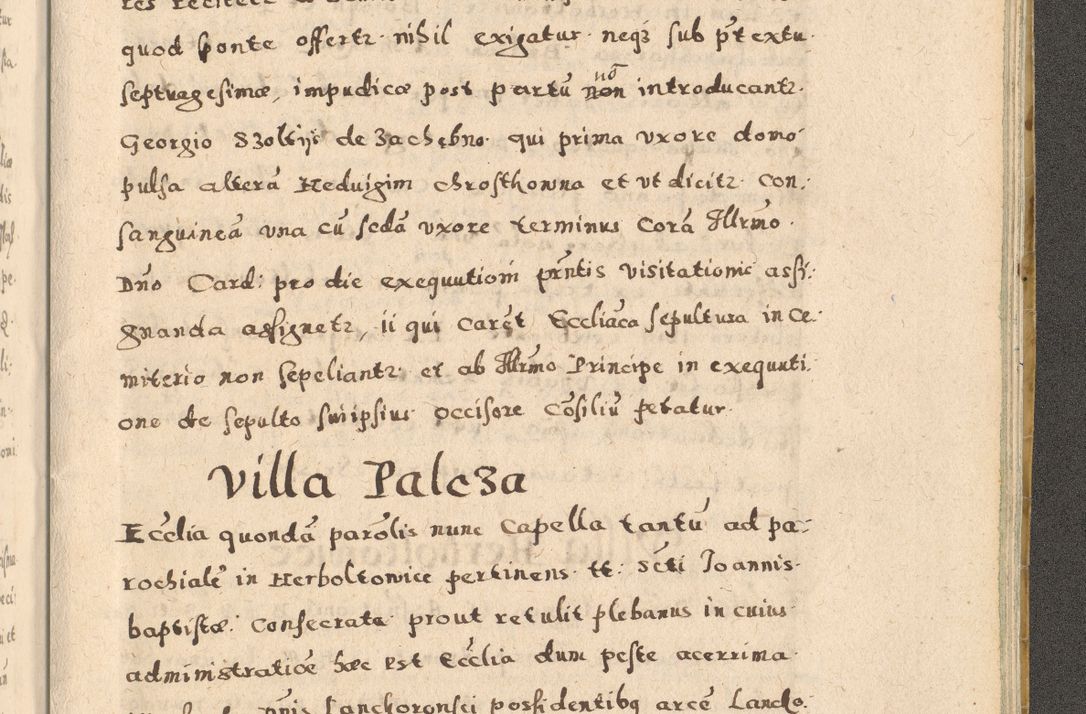 quod sponte offertz. nihil exigatur. neqz sub pŕtextu.
septuagesimæ, impudicæ post partū non introducantz.
Georgio Szolwij de Zachębno. qui prima uxore domo
pulsa alterā Heduigim Chrosthowna et vt dicitz. con:
sanguineā vna cū sedā uxore terminus Corā Illrmo.
Dño Card: pro die exequutioni pŕntis visitationis assi:
gnanda assignetz, ii qui carēt Eccliāca sepultura in Ce:
miterio non sepeliantz. et ab Illrmo Principe in exequuti:
one de sepulto suiipsius occisore Cōsiliū petatur.
Villa Palcza
Ecclia quondā parōlis nunc Capella tantū ad pa:
rochialē in Herboltowice pertinens. tt: Scti Joannis.
baptistæ. Consecrata prout retulit plebanus in cuius.
administratiōe hæc est Ecclia dum peste acerrima.
Lanckoronsci possidentibq arcē Lancko: